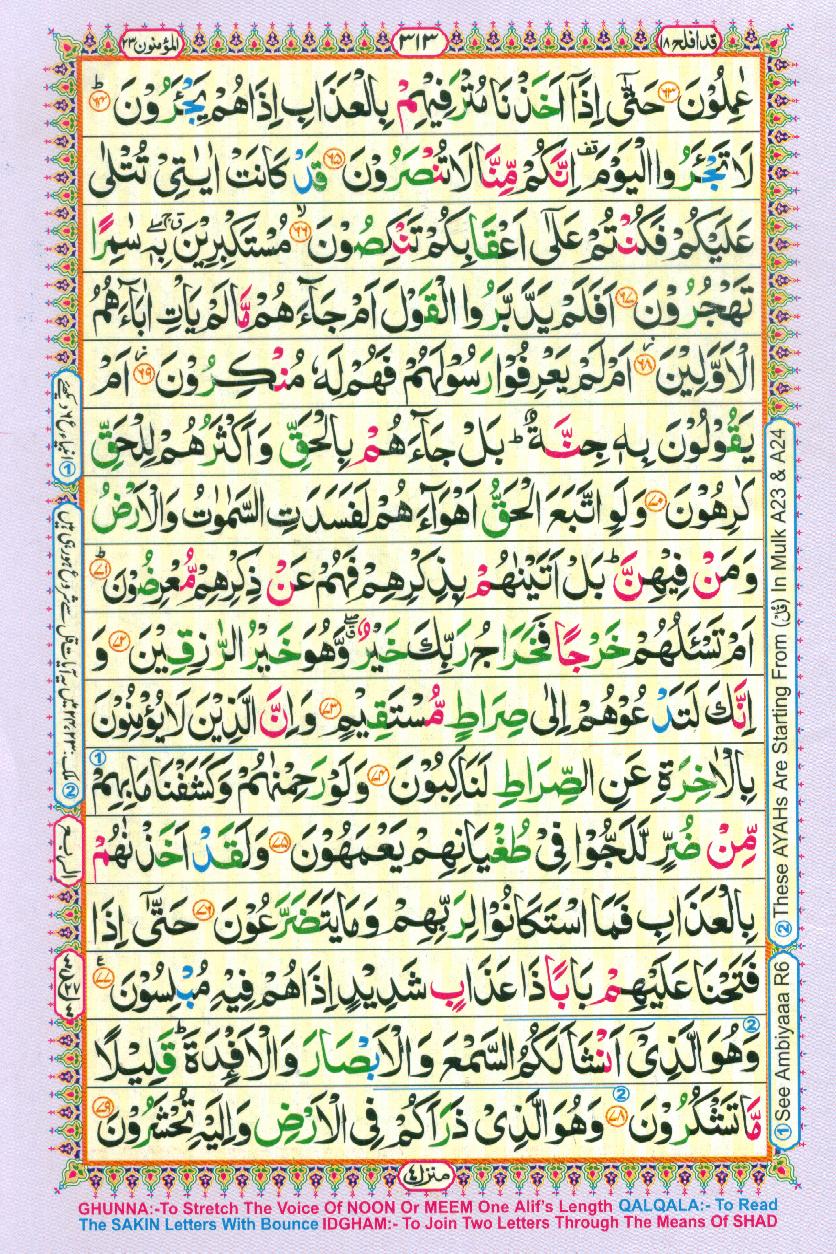 قد افلح ١٨
٣١٣
المؤمنون ٢٣
عٰمِلُوْنَ ﴿٦٣﴾ حَتّٰۤى اِذَاۤ اَخَذْنَا مُتْرَفِيْهِمْ بِالْعَذَابِ اِذَا هُمْ يَجْـَٔرُوْنَ ؕ﴿٦٤﴾
لَا تَجْـَٔرُوا الْيَوْمَ ۫ اِنَّكُمْ مِّنَّا لَا تُنْصَرُوْنَ ﴿٦٥﴾ قَدْ كَانَتْ اٰيٰتِىْ تُتْلٰى
عَلَيْكُمْ فَكُنْتُمْ عَلٰۤى اَعْقَابِكُمْ تَنْكِصُوْنَ ۙ﴿٦٦﴾ مُسْتَكْبِرِيْنَ ۖۗ بِهٖ سٰمِرًا
تَهْجُرُوْنَ ﴿٦٧﴾ اَفَلَمْ يَدَّبَّرُوا الْقَوْلَ اَمْ جَآءَهُمْ مَّا لَمْ يَاْتِ اٰبَآءَهُمُ
الْاَوَّلِيْنَ ۫﴿٦٨﴾ اَمْ لَمْ يَعْرِفُوْا رَسُوْلَهُمْ فَهُمْ لَهٗ مُنْكِرُوْنَ ۫﴿٦٩﴾ اَمْ
يَقُوْلُوْنَ بِهٖ جِنَّةٌ ؕ بَلْ جَآءَهُمْ بِالْحَقِّ وَاَكْثَرُهُمْ لِلْحَقِّ
كٰرِهُوْنَ ﴿٧٠﴾ وَلَوِ اتَّبَعَ الْحَقُّ اَهْوَآءَهُمْ لَفَسَدَتِ السَّمٰوٰتُ وَالْاَرْضُ
وَمَنْ فِيْهِنَّ ؕ بَلْ اَتَيْنٰهُمْ بِذِكْرِهِمْ فَهُمْ عَنْ ذِكْرِهِمْ مُّعْرِضُوْنَ ؕ﴿٧١﴾
اَمْ تَسْـَٔلُهُمْ خَرْجًا فَخَرَاجُ رَبِّكَ خَيْرٌ ۖۗ وَّهُوَ خَيْرُ الرّٰزِقِيْنَ ﴿٧٢﴾ وَ
اِنَّكَ لَتَدْعُوْهُمْ اِلٰى صِرَاطٍ مُّسْتَقِيْمٍ ﴿٧٣﴾ وَاِنَّ الَّذِيْنَ لَا يُؤْمِنُوْنَ
بِالْاٰخِرَةِ عَنِ الصِّرَاطِ لَنٰكِبُوْنَ ﴿٧٤﴾ وَلَوْ رَحِمْنٰهُمْ وَكَشَفْنَا مَا بِهِمْ
مِّنْ ضُرٍّ لَّلَجُّوْا فِىْ طُغْيَانِهِمْ يَعْمَهُوْنَ ﴿٧٥﴾ وَلَقَدْ اَخَذْنٰهُمْ
بِالْعَذَابِ فَمَا اسْتَكَانُوْا لِرَبِّهِمْ وَمَا يَتَضَرَّعُوْنَ ﴿٧٦﴾ حَتّٰۤى اِذَا
فَتَحْنَا عَلَيْهِمْ بَابًا ذَا عَذَابٍ شَدِيْدٍ اِذَا هُمْ فِيْهِ مُبْلِسُوْنَ ﴿٧٧﴾
وَهُوَ الَّذِىْۤ اَنْشَاَ لَكُمُ السَّمْعَ وَالْاَبْصَارَ وَالْاَفْـِٕدَةَ ؕ قَلِيْلًا
مَّا تَشْكُرُوْنَ ﴿٧٨﴾ وَهُوَ الَّذِىْ ذَرَاَكُمْ فِى الْاَرْضِ وَاِلَيْهِ تُحْشَرُوْنَ ﴿٧٩﴾
منزل ٤
① See Ambiyaaa R6
② These AYAHs Are Starting From (قل) In Mulk A23 & A24
GHUNNA:-To Stretch The Voice Of NOON Or MEEM One Alif's Length QALQALA:- To Read
The SAKIN Letters With Bounce IDGHAM:- To Join Two Letters Through The Means Of SHAD